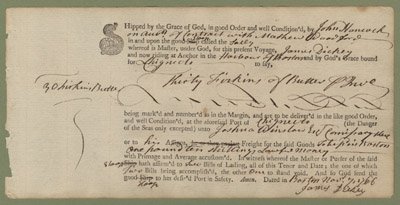 SHipped by the Grace of God, in good Order and well Condition'd, by John Hancock
on Acco[t] of Contract with
in and upon the good called the Sally
whereof is Master, under God, for this present Voyage, James Dickey
and now riding at Anchor in the Harbour of Boston and by God's Grace bound
for Chignecto to say,
30 Firkins Butter Thirty Firkins of Butter
being mark'd and number'd as in the Margin, and are to be deliver'd in the like good Order,
and well Condition'd, at the aforesaid Port of Chignecto (the Danger
of the Seas only excepted) unto Joshua Winslow Commissary there
or to his Assigns, Freight for the said Goods,
one pound ten Shillings Lawful money
with Primage and Average accustom'd. In witness whereof the Master or Purser of the said
hath affirm'd to Bills of Lading, all of this Tenor and Date; the one of which
Bills being accomplish'd, the other to stand void. And so God send the
good Sloop to her desir'd Port in Safety. Amen. Dated in Boston Nov. 7, 1766
James Dickey